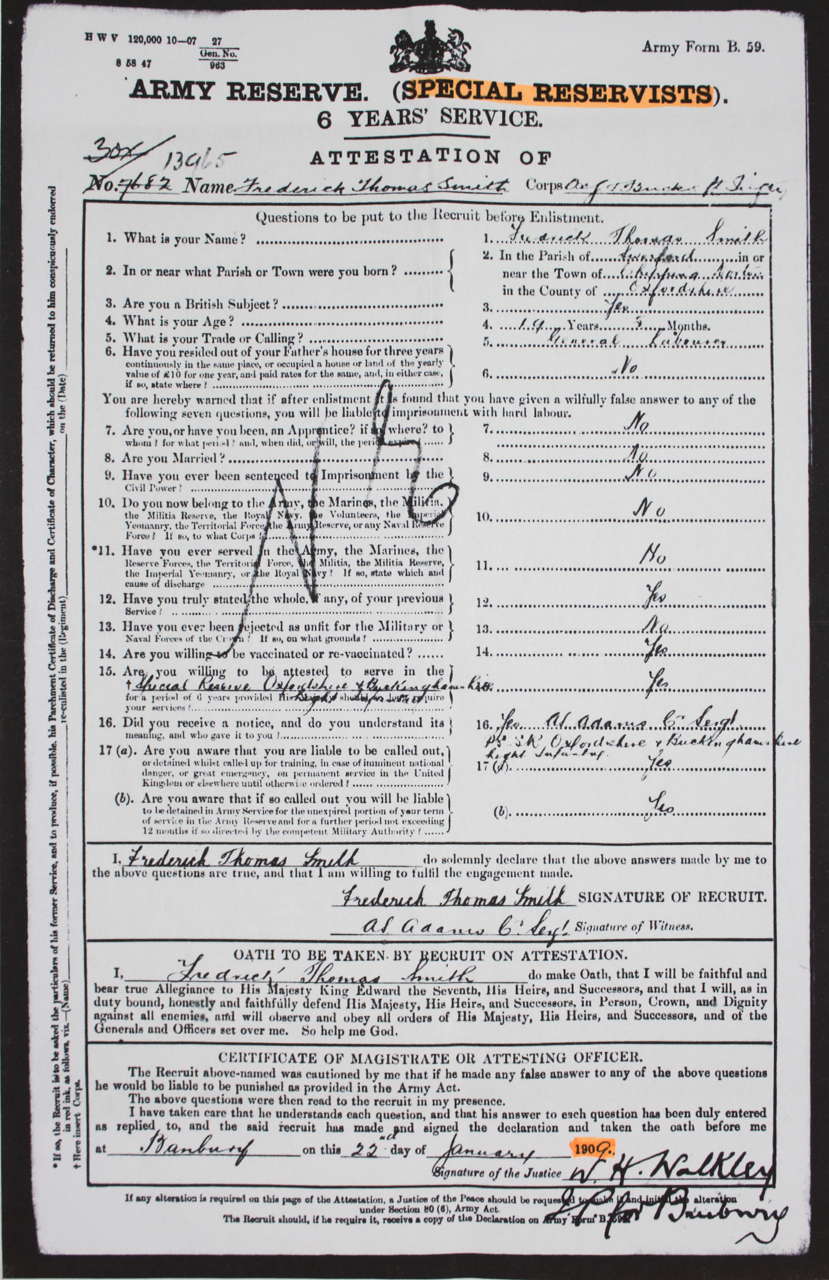 H W V 120,000 10—07 27
Gen. No.
8 58 47 963
Army Form B. 59.
ARMY RESERVE. (SPECIAL RESERVISTS).
6 YEARS' SERVICE.
ATTESTATION OF
13965
No. 7682 Name Frederick Thomas Smith Corps
Questions to be put to the Recruit before Enlistment.
1. What is your Name? 1. Fredrick Thomas Smith
2. In or near what Parish or Town were you born? 2. In the Parish of Swerford in or
near the Town of Chipping Norton
in the County of Oxfordshire
3. Are you a British Subject? 3. Yes
4. What is your Age? 4. 19 Years 3 Months.
5. What is your Trade or Calling? 5. General Labourer
6. Have you resided out of your Father's house for three years
continuously in the same place, or occupied a house or land of the yearly
value of £10 for one year, and paid rates for the same, and, in either case,
if so, state where? 6. No
You are hereby warned that if after enlistment it is found that you have given a wilfully false answer to any of the
following seven questions, you will be liable to imprisonment with hard labour.
7. Are you, or have you been, an Apprentice? if so where? to
whom? for what period? and, when did, or will, the period expire? 7. No
8. Are you Married? 8. No
9. Have you ever been sentenced to Imprisonment by the
Civil Power? 9. No
10. Do you now belong to the Army, the Marines, the Militia,
the Militia Reserve, the Royal Navy, the Volunteers, the Imperial
Yeomanry, the Territorial Force, the Army Reserve, or any Naval Reserve
Force? If so, to what Corps? 10. No
*11. Have you ever served in the Army, the Marines, the
Reserve Forces, the Territorial Force, the Militia, the Militia Reserve,
the Imperial Yeomanry, or the Royal Navy? If so, state which and
cause of discharge 11. No
12. Have you truly stated the whole, if any, of your previous
Service? 12. Yes
13. Have you ever been rejected as unfit for the Military or
Naval Forces of the Crown? If so, on what grounds? 13. No
14. Are you willing to be vaccinated or re-vaccinated? 14. Yes
15. Are you willing to be attested to serve in the
† Special Reserve Oxfordshire & Buckinghamshire Yes
for a period of 6 years provided His Majesty should so long require
your services? Light Infantry
16. Did you receive a notice, and do you understand its
meaning, and who gave it to you? 16. Yes AS Adams Cr Sergt
Oxfordshire & Buckinghamshire
Light Infantry
17 (a). Are you aware that you are liable to be called out,
or detained whilst called up for training, in case of imminent national
danger, or great emergency, on permanent service in the United
Kingdom or elsewhere until otherwise ordered? 17 (a). Yes
(b). Are you aware that if so called out you will be liable
to be detained in Army Service for the unexpired portion of your term
of service in the Army Reserve and for a further period not exceeding
12 months if so directed by the competent Military Authority? (b). Yes
I, Frederick Thomas Smith do solemnly declare that the above answers made by me to
the above questions are true, and that I am willing to fulfil the engagement made.
Frederick Thomas Smith SIGNATURE OF RECRUIT.
AS Adams Cr Sergt Signature of Witness.
OATH TO BE TAKEN BY RECRUIT ON ATTESTATION.
I, Fredrick Thomas Smith do make Oath, that I will be faithful and
bear true Allegiance to His Majesty King Edward the Seventh, His Heirs, and Successors, and that I will, as in
duty bound, honestly and faithfully defend His Majesty, His Heirs, and Successors, in Person, Crown, and Dignity
against all enemies, and will observe and obey all orders of His Majesty, His Heirs, and Successors, and of the
Generals and Officers set over me. So help me God.
CERTIFICATE OF MAGISTRATE OR ATTESTING OFFICER.
The Recruit above-named was cautioned by me that if he made any false answer to any of the above questions
he would be liable to be punished as provided in the Army Act.
The above questions were then read to the recruit in my presence.
I have taken care that he understands each question, and that his answer to each question has been duly entered
as replied to, and the said recruit has made and signed the declaration and taken the oath before me
at Banbury on this 22nd day of January 1909.
Signature of the Justice W. H. Walkley
JP for Banbury
If any alteration is required on this page of the Attestation, a Justice of the Peace should be requested to make it and initial the alteration
under Section 80 (6), Army Act.
The Recruit should, if he require it, receive a copy of the Declaration on Army Form B.
*If so, the Recruit is to be asked the particulars of his former Service, and to produce, if possible, his Parchment Certificate of Discharge and Certificate of Character, which should be returned to him conspicuously endorsed
in red ink, as follows, viz.—(Name) re-enlisted in the (Regiment) on the (Date)
† Here insert Corps.